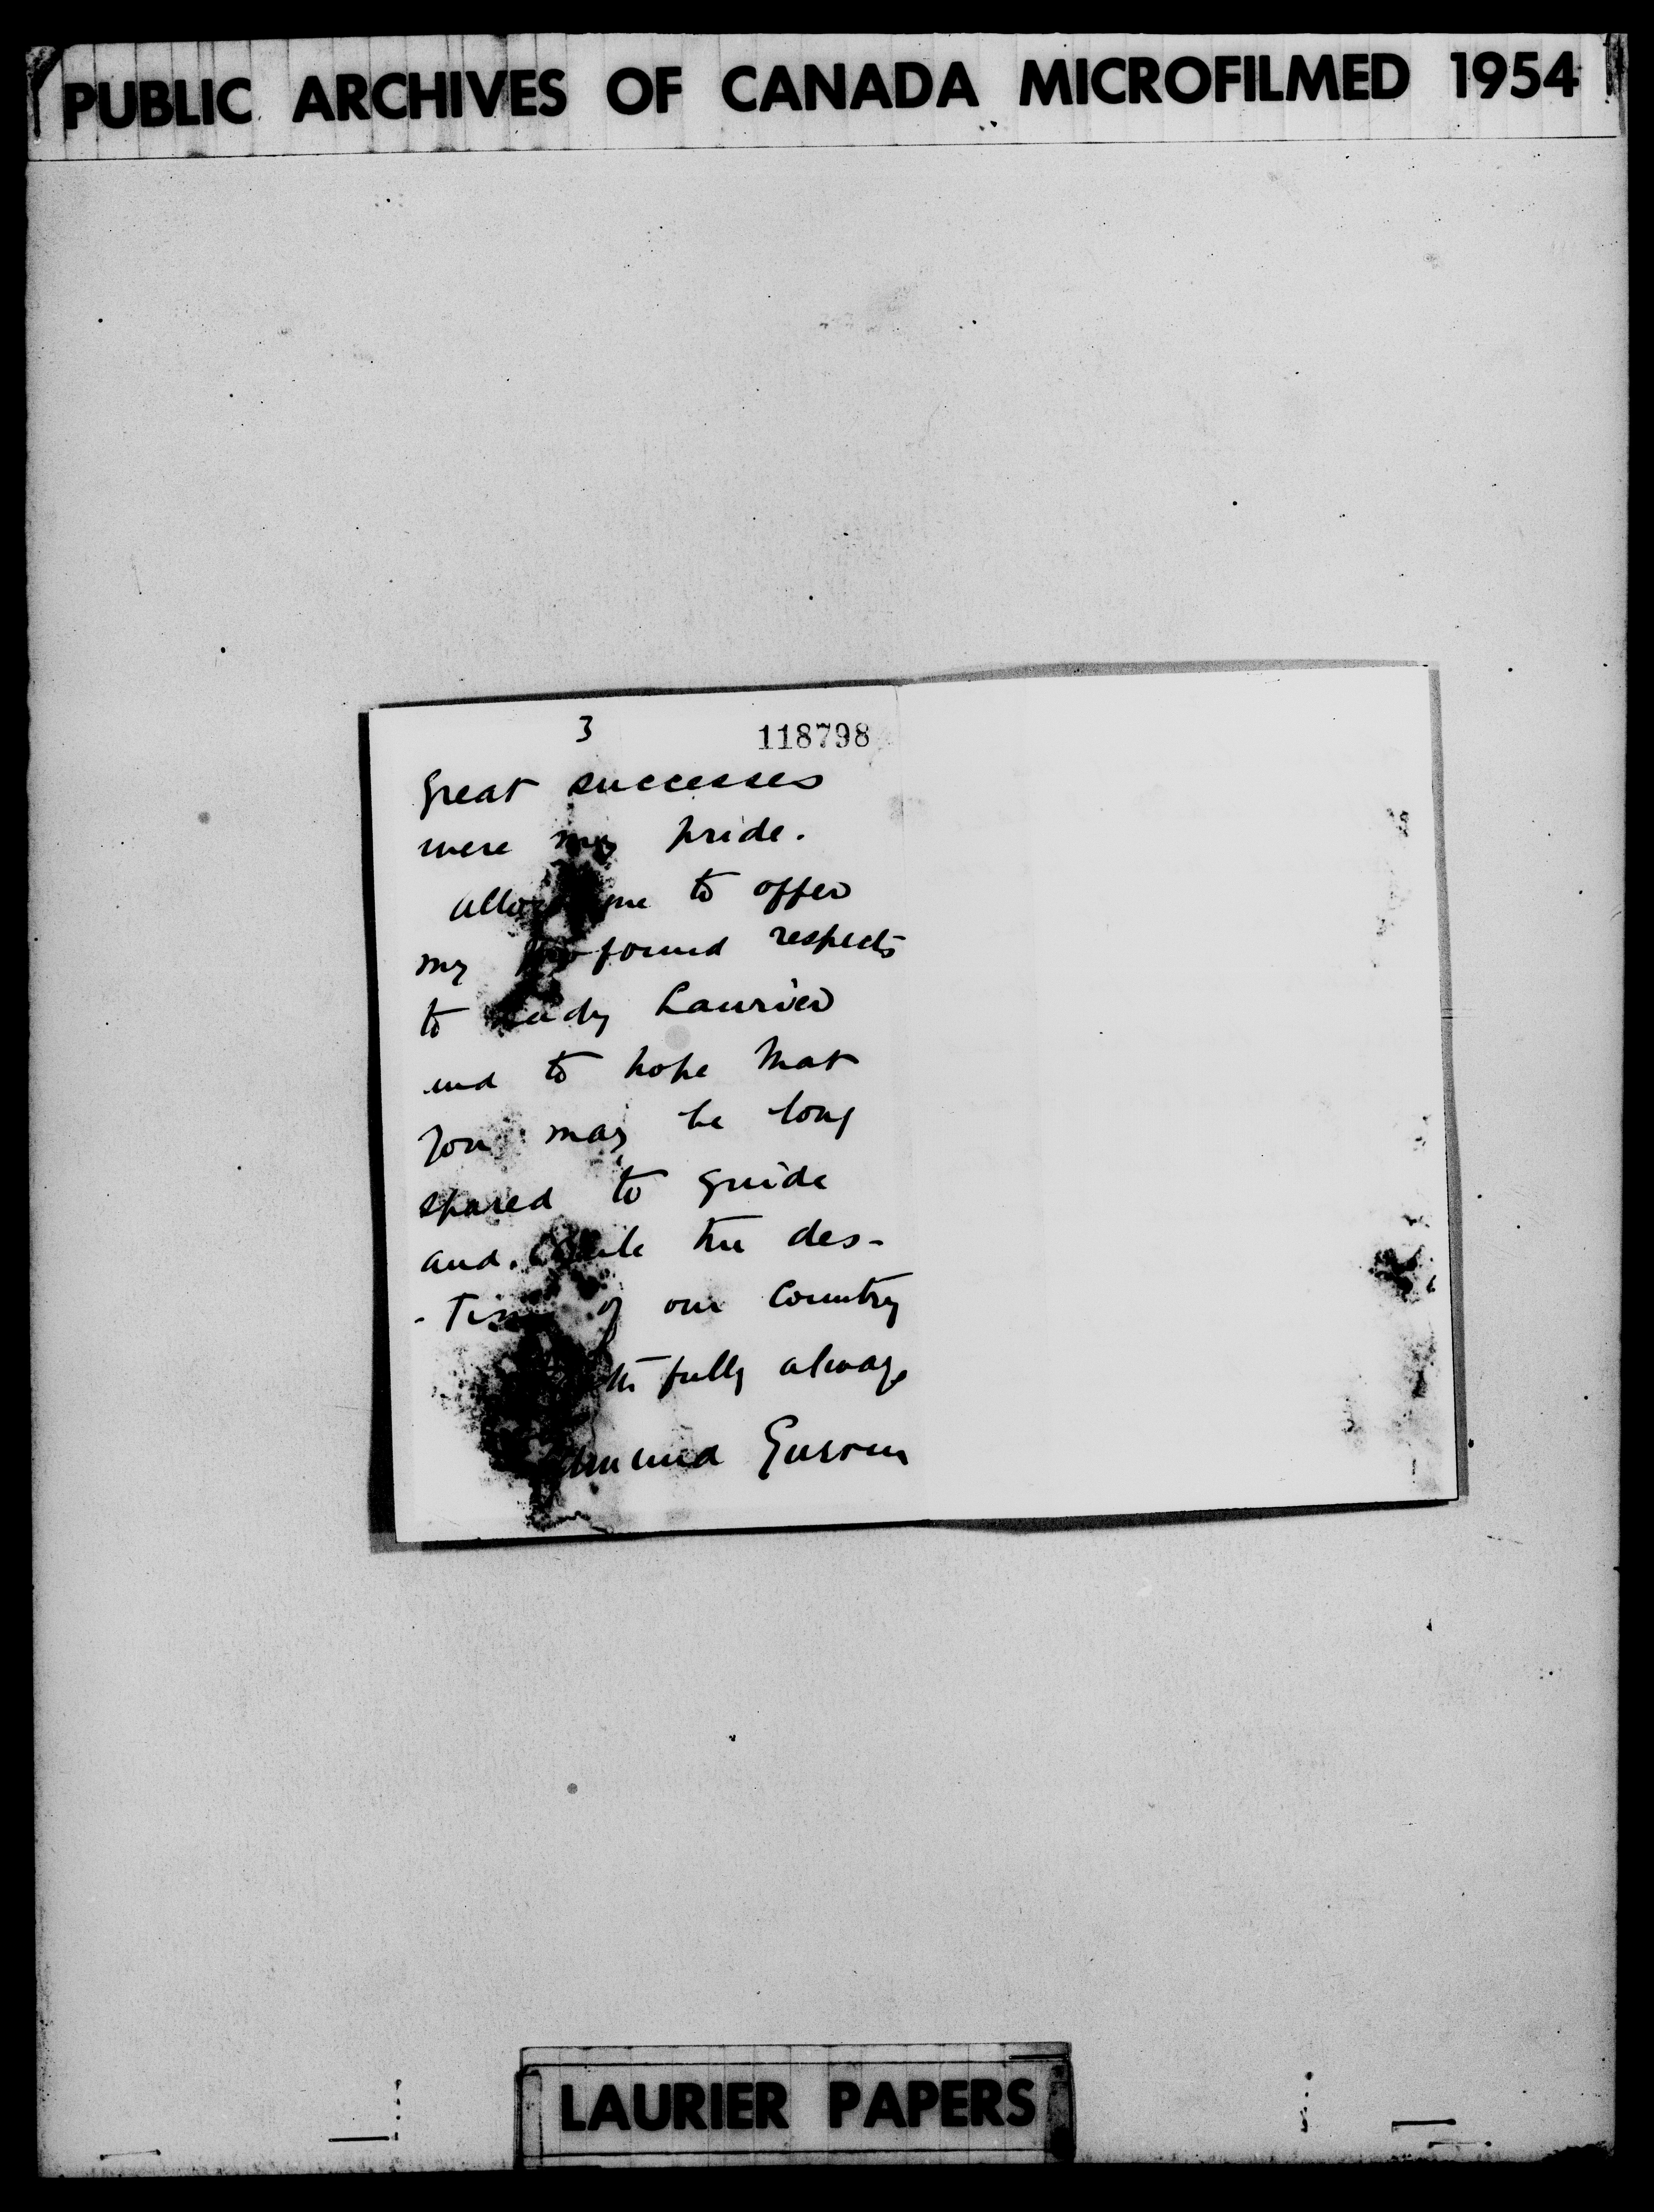 PUBLIC ARCHIVES OF CANADA MICROFILMED 1954
3
118798
Great successes
were my pride.
Allow me to offer
my profound respects
to Lady Laurier
and to hope that
you may be long
spared to guide
and the des-
-tiny of our Country
fully always
LAURIER PAPERS